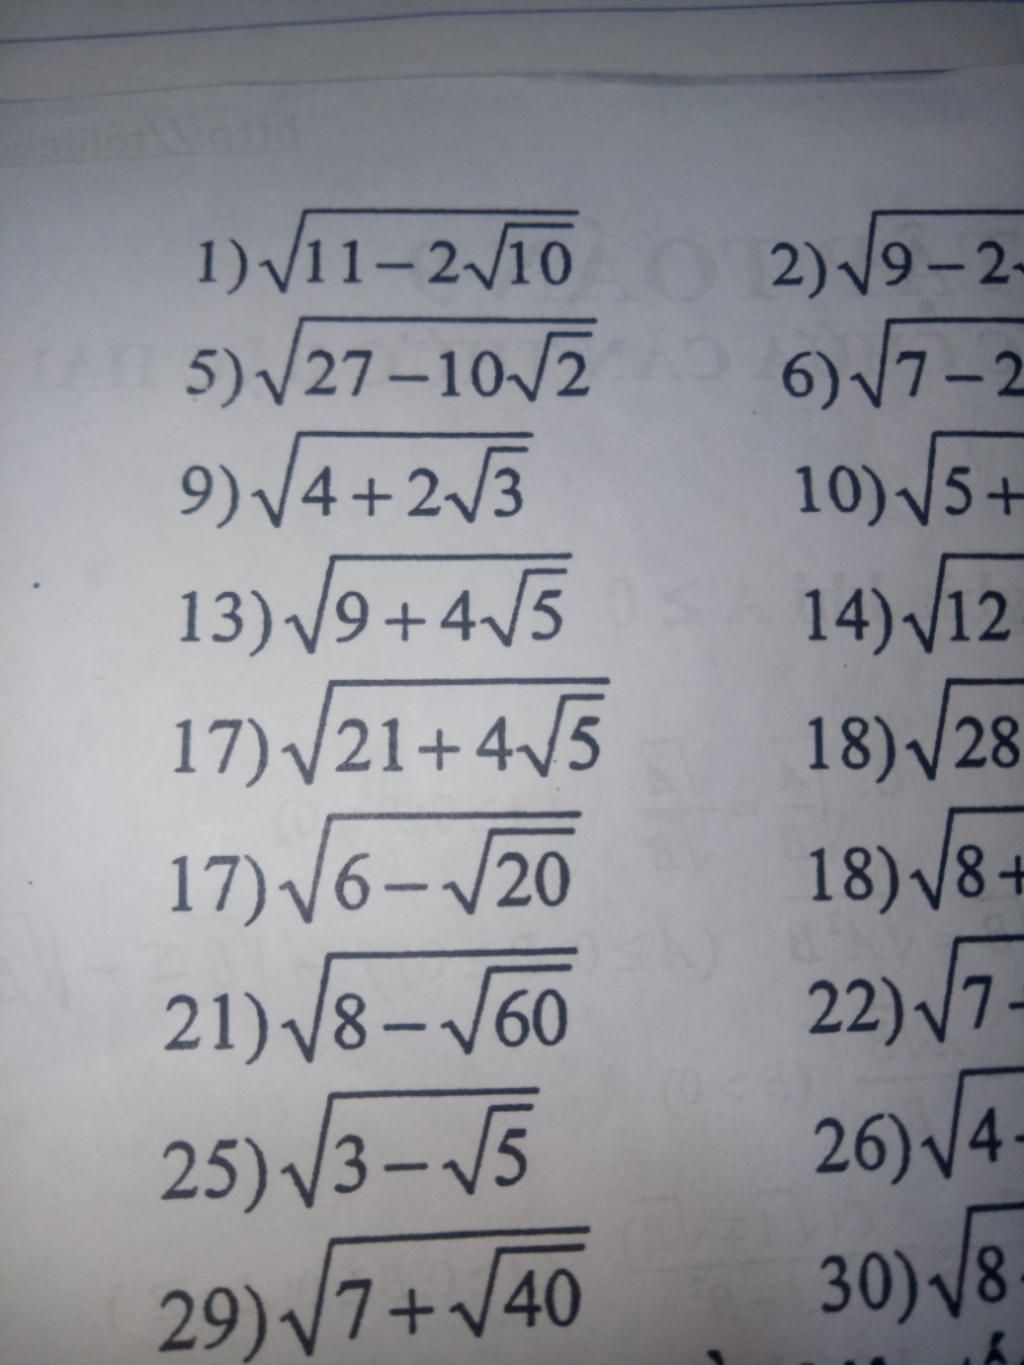 1) √(11 − 2√10) 2) √9 − 2
5) √(27 − 10√2) 6) √7 − 2
9) √(4 + 2√3) 10) √5 +
13) √(9 + 4√5) 14) √12
17) √(21 + 4√5) 18) √28
17) √(6 − √20) 18) √8 +
21) √(8 − √60) 22) √7 -
25) √(3 − √5) 26) √4 -
29) √(7 + √40) 30) √8